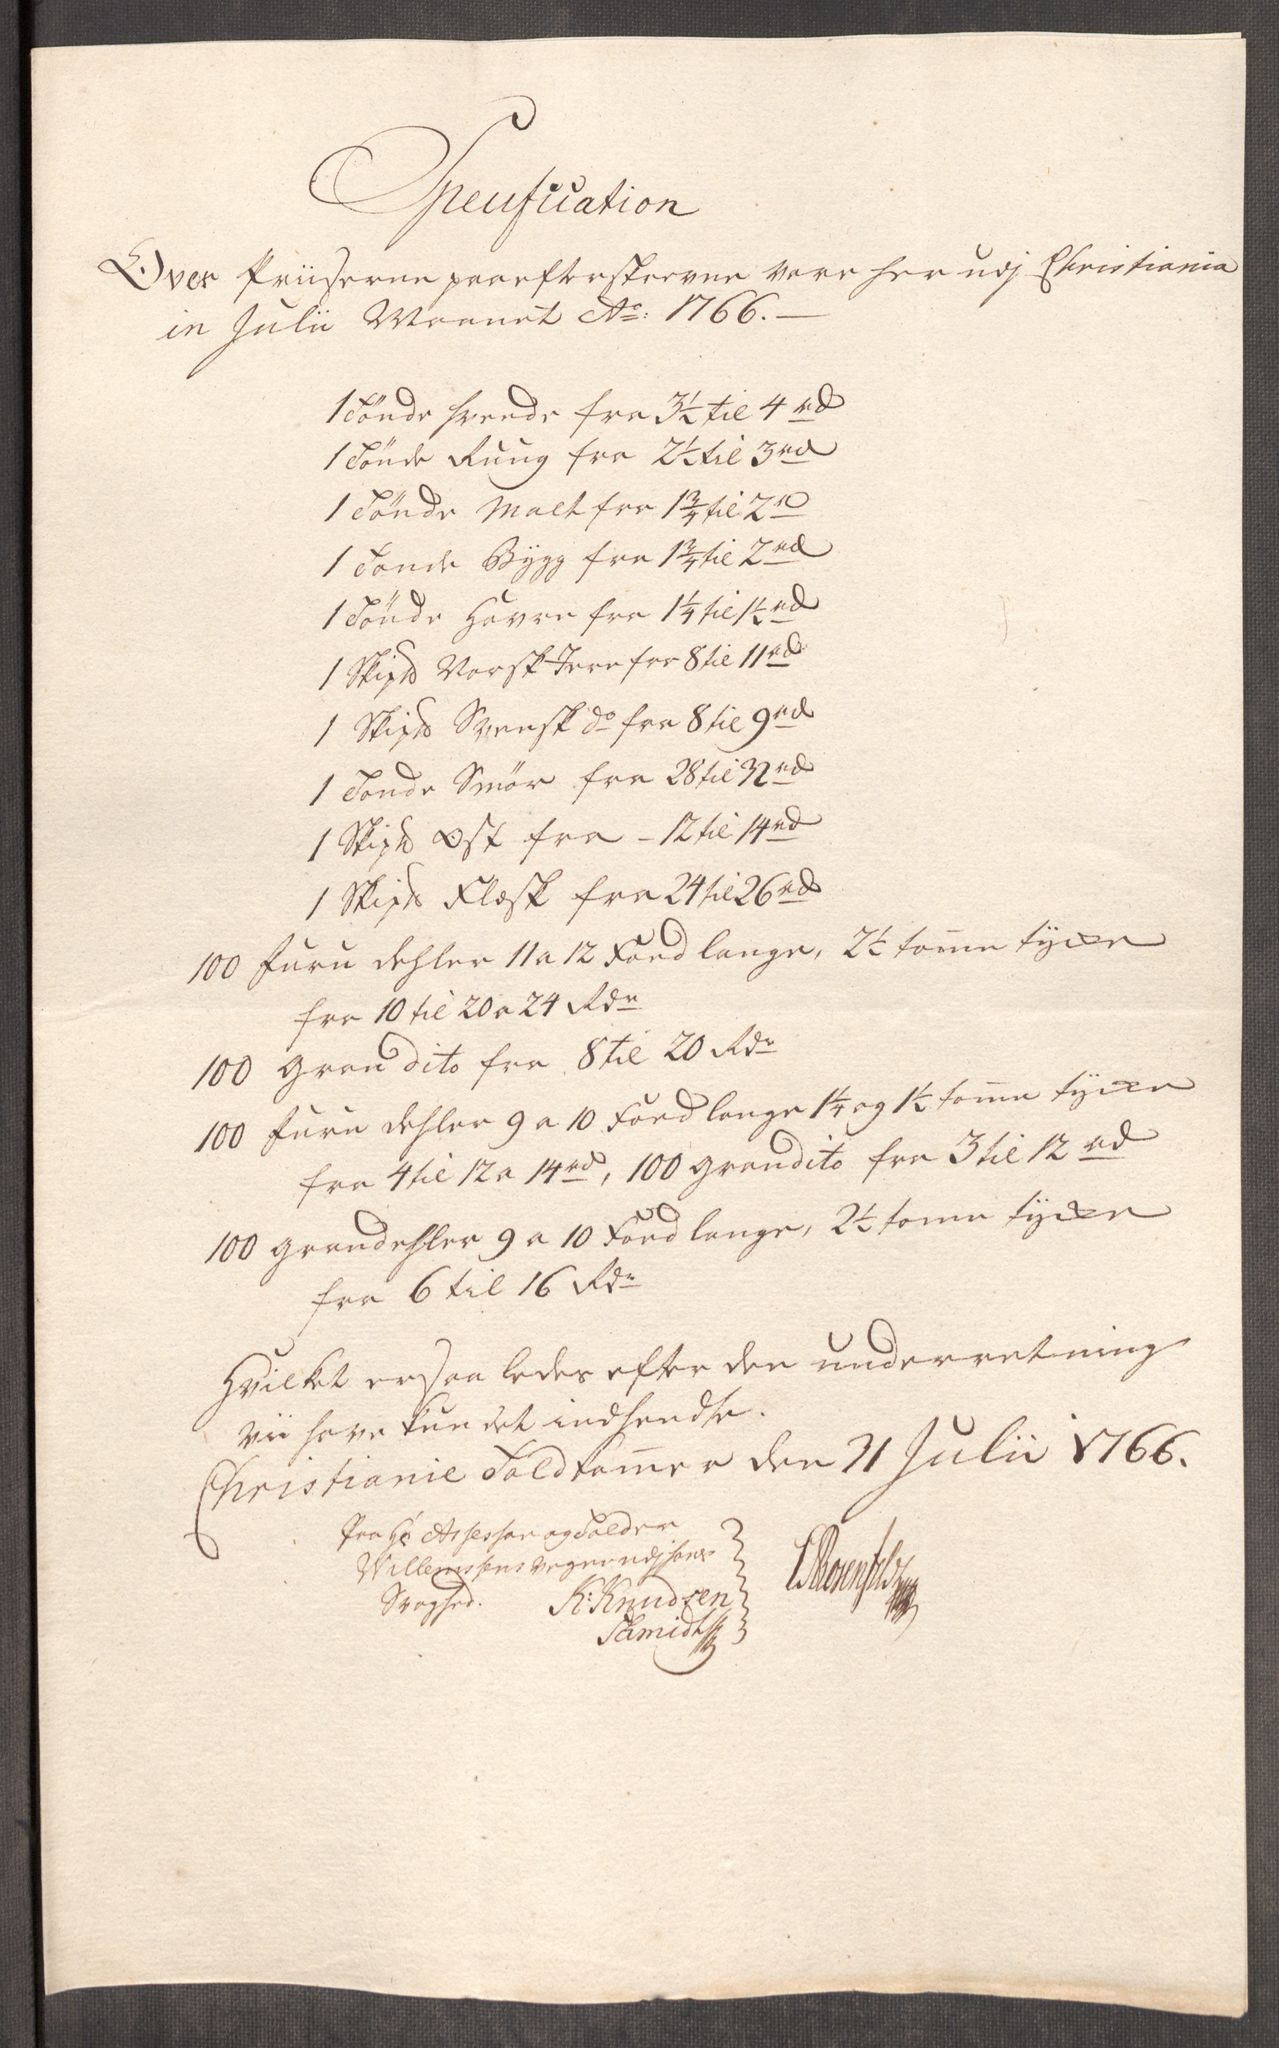 Specification
Over Priiserne paa efterskrevne vare her udj Christiania
in Julii Maanet Ao: 1766. —
1 Tönde hveede fra 3½ til 4 rd
1 Tönde Ruug fra 2½ til 3 rd
1 Tönde Malt fra 1¾ til 2 rd
1 Tonde Bÿgg fra 1¾ til 2 rd
1 Tönde Havre fra 1¼ til 1½ rd
1 Skipd Norsk Jern fra 8 til 11 rd
1 Skipd Svensk do fra 8 til 9 rd
1 Tonde Smör fra 28 til 32 rd
1 Skipd Ost fra – 12 til 14 rd
1 Skipd Flesk fra 24 til 26 rd
100 furu dehler 11 a 12 Foed lange, 2½ tomme tÿcke
fra 10 til 20 a 24 Rdr
100 gran dito fra 8 til 20 Rdr
100 furu dehler 9 a 10 Foed lange 1¼ og 1½ tomme tÿcke
fra 4 til 12 a 14 rd, 100 gran dito fra 3 til 12 rd
100 grandehler 9 a 10 Foed lange, 2½ tome tÿcke
fra 6 til 16 Rdr
Hvilket ersaaledes efter den underretning
vii have kundet indhendte.
Christianie Toldkammer den 31 Julii 1766.
Paa Hr Assessor og Tolder
Willemsens vegne udj hans
Svaghed. K: Knudsen
Schmidt
Rosenfeldt